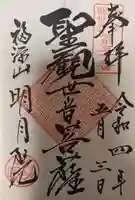 奉拝
令和四年二月三日
聖観世音菩薩
福源山 明月院